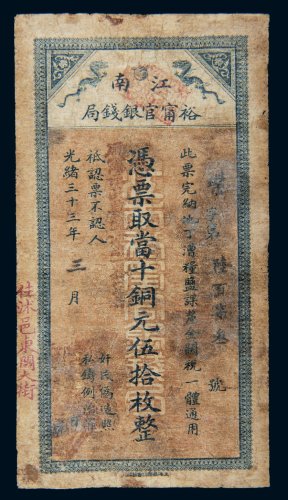 江南
裕甯官銀錢局
陸百
號
此票完納地丁漕糧鹽課釐金關稅一體通用
憑票取當十銅元伍拾枚整
祗認票不認人
光緒三十三年 三 月
奸民偽造照
私鑄例治罪
住沭邑東關大街